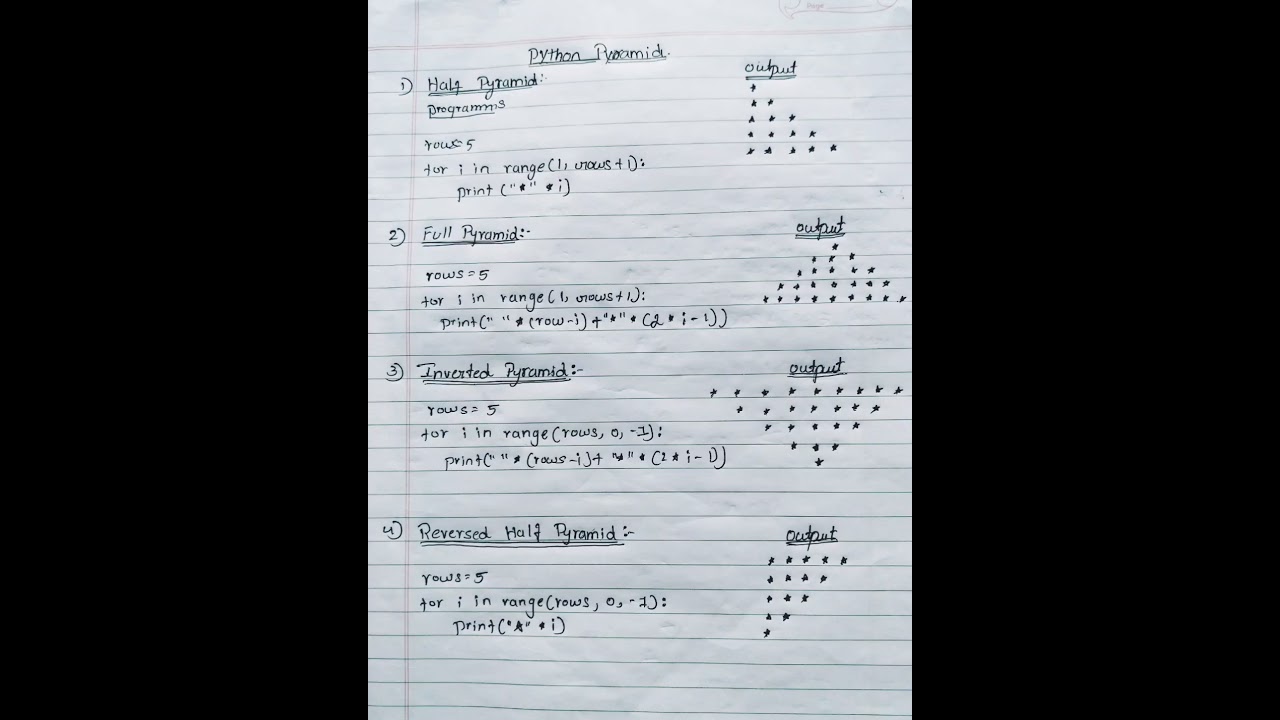 Python Pyramid.
1) Half Pyramid:-
programms
rows=5
for i in range(1, rows+1):
print ("*" * i)
output
*
* *
* * *
* * * *
* * * * *
2) Full Pyramid:-
rows=5
for i in range(1, rows+1):
print(" " * (row-i) + "*" * (2 * i - 1))
output
*
* * *
* * * * *
* * * * * * *
* * * * * * * * *
3) Inverted Pyramid:-
rows= 5
for i in range(rows, 0, -1):
print(" " * (rows-i) + "*" * (2 * i - 1))
output
* * * * * * * * *
* * * * * * *
* * * * *
* * *
*
4) Reversed Half Pyramid:-
rows=5
for i in range(rows, 0, -1):
print("*" * i)
output
* * * * *
* * * *
* * *
* *
*